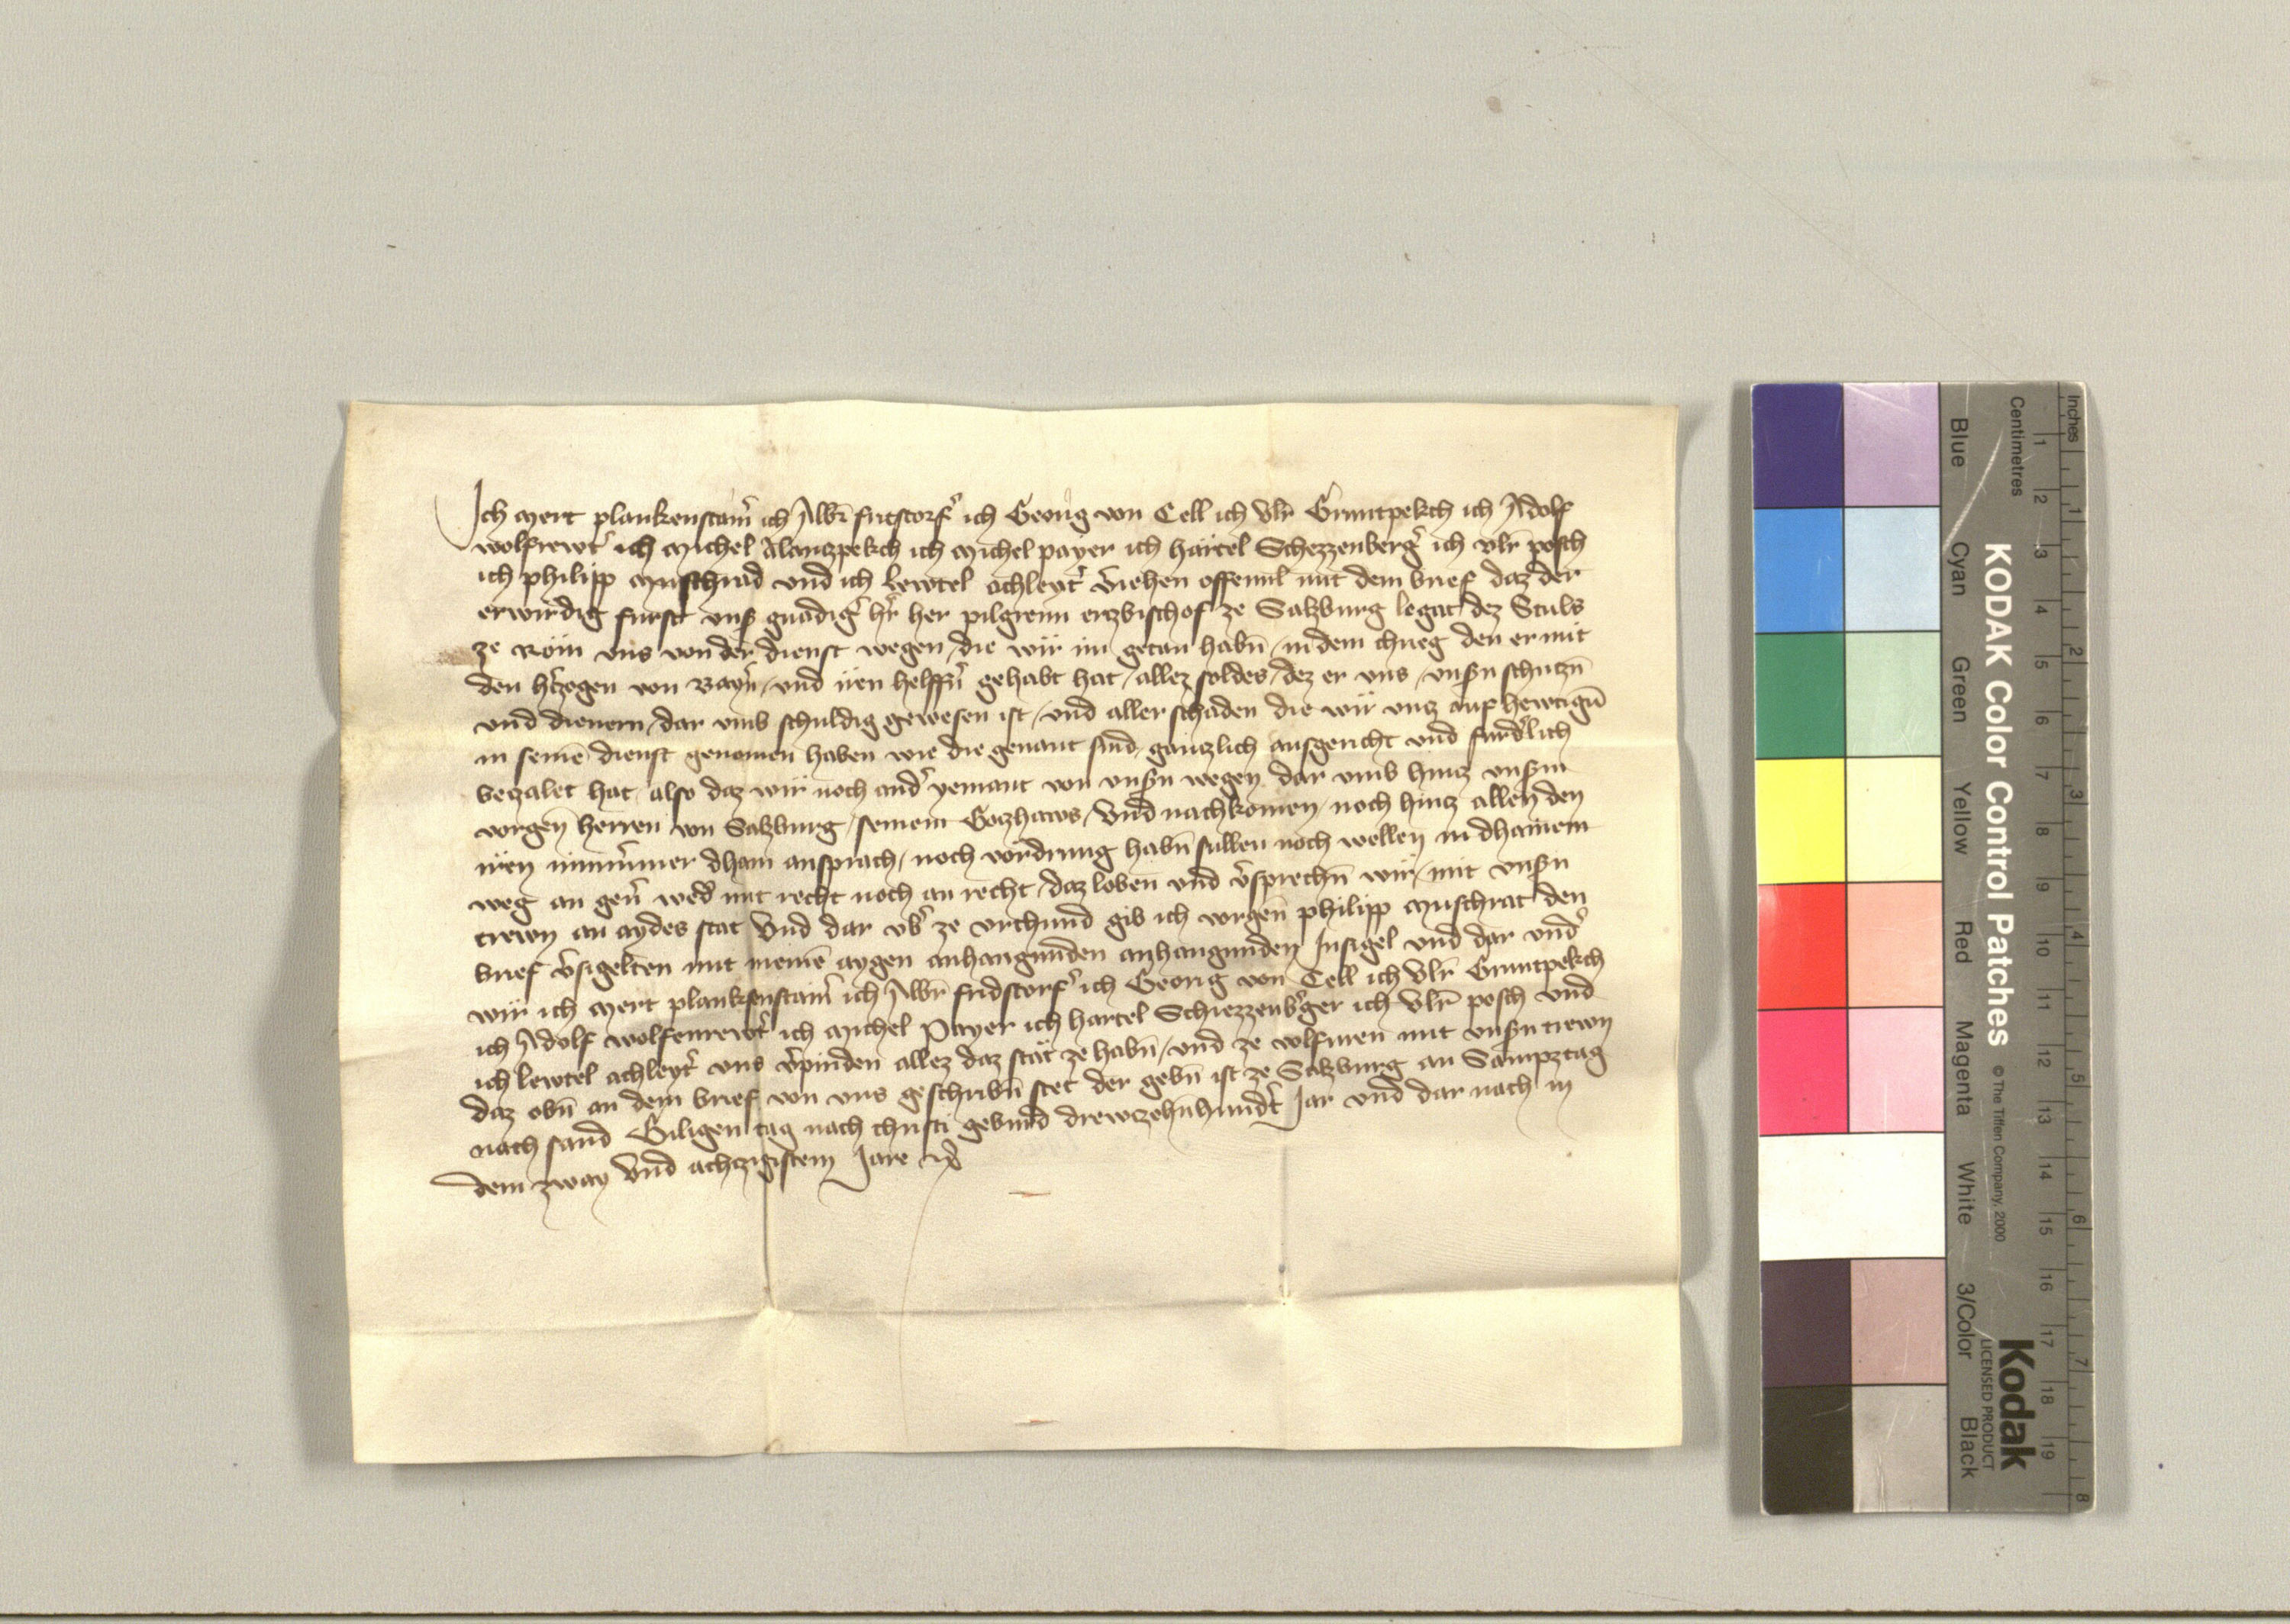 Ich Mert plankenstain̄ ich Albr̄ fritstorf̄ ich Georig von Cell ich Vlr̄ Gruntpekch ich Adolf
wolfrewt̄ ich Michel Alantzpekch ich Michel payer ich hartel Schezzenberḡ ich vlr̄ posch
ich philipp Muschrad vnd ich Lewtel achleyt̄ v̄iehen offennl mit dem brief daz der
erwirdig furst vns̄ gnadiḡ hr̄ her pilgreim ertzbischof ze Saltzburg legat dez Stuls
ze Rom vns von der dienst wegen / die wir im getan habn̄ / in dem chrieg den er mit
den hertzogen von Bayrn̄ / vnd iren helffn̄ gehabt hat / allez soldes / dez er vns / vns̄n schutzn̄
vnd dienern / dar vmb schuldig gewesen ist / vnd aller schaden die wir vntz auf hewtign̄
in seinē dienst genomen haben wie die genant sind / gantzlich ausgericht vnd furd̄lich
betzalet hat / also daz wir noch and̄ yemant von vns̄n wegen dar vmb hintz vns̄m
vorgen̄ herren von Saltzburg / seinem Gotzhaws / vnd nachkomen / noch hintz allen den
iren nimm̄mer dhain ansprach / noch vordrung habn̄ sullen noch wellen in dhainem
weg an gen̄ wed̄ mit recht noch an recht / daz loben vnd v̄sprechn̄ wir / mit vns̄n
trewn an aydes stat Vnd dar vb̄ ze vrchund gib ich vorgen̄ philipp Muschrat den
brief v̄sigelten mit meinē aygen anhangunden anhangunden Insigel vnd dar vnd̄
wir ich Mert plankenstain̄ ich Albr̄ fridstorf̄ ich Georig von Cell ich Vlr̄ Gruntpekch
ich Adolf wolfenrewt̄ ich Michel Payer ich hartel Schiezzenb̄ger ich Vlr̄ posch vnd
ich lewtel achleyt̄ vns v̄pinden allez daz stät ze habn̄ / vnd ze volfuren mit vns̄n trewn
daz obn̄ an dem brief von vns geschribn̄ stet der gebn̄ ist ze Saltzburg an Sampztag
nach sand Giligen tag nach christi geburd drewtzehnhund̄t Jar vnd dar nach in
dem zway Vnd achtzigistem Jare
Inches
Centimetres
1 2 3 4 5 6 7 8
1 2 3 4 5 6 7 8 9 10 11 12 13 14 15 16 17 18 19
KODAK Color Control Patches
© The Tiffen Company, 2000
Kodak
LICENSED PRODUCT
Blue Cyan Green Yellow Red Magenta White 3/Color Black